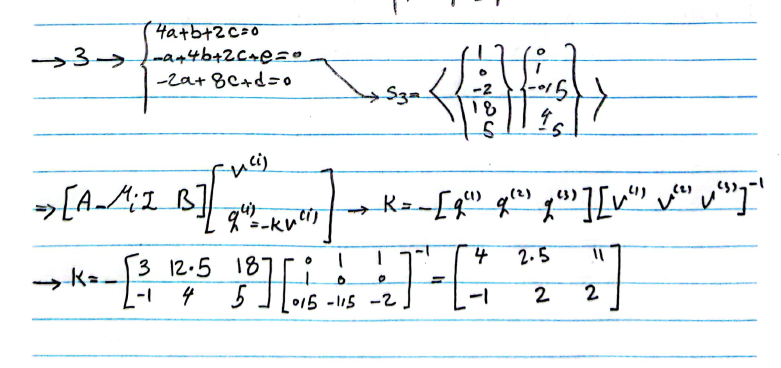 → 3 → { 4a+b+2c=0
-a+4b+2c+e=0
-2a+8c+d=0
→ S₃= ⟨ [1 0 -2 18 5] [0 1 -0/5 4 -5] ⟩
⇒ [A-μᵢI B] [v⁽ⁱ⁾ q⁽ⁱ⁾=-kv⁽ⁱ⁾] → K = -[q⁽¹⁾ q⁽²⁾ q⁽³⁾][v⁽¹⁾ v⁽²⁾ v⁽³⁾]⁻¹
→ K = - [3 12.5 18; -1 4 5] [0 1 1; 1 0 0; 0/5 -1/5 -2]⁻¹ = [4 2.5 11; -1 2 2]